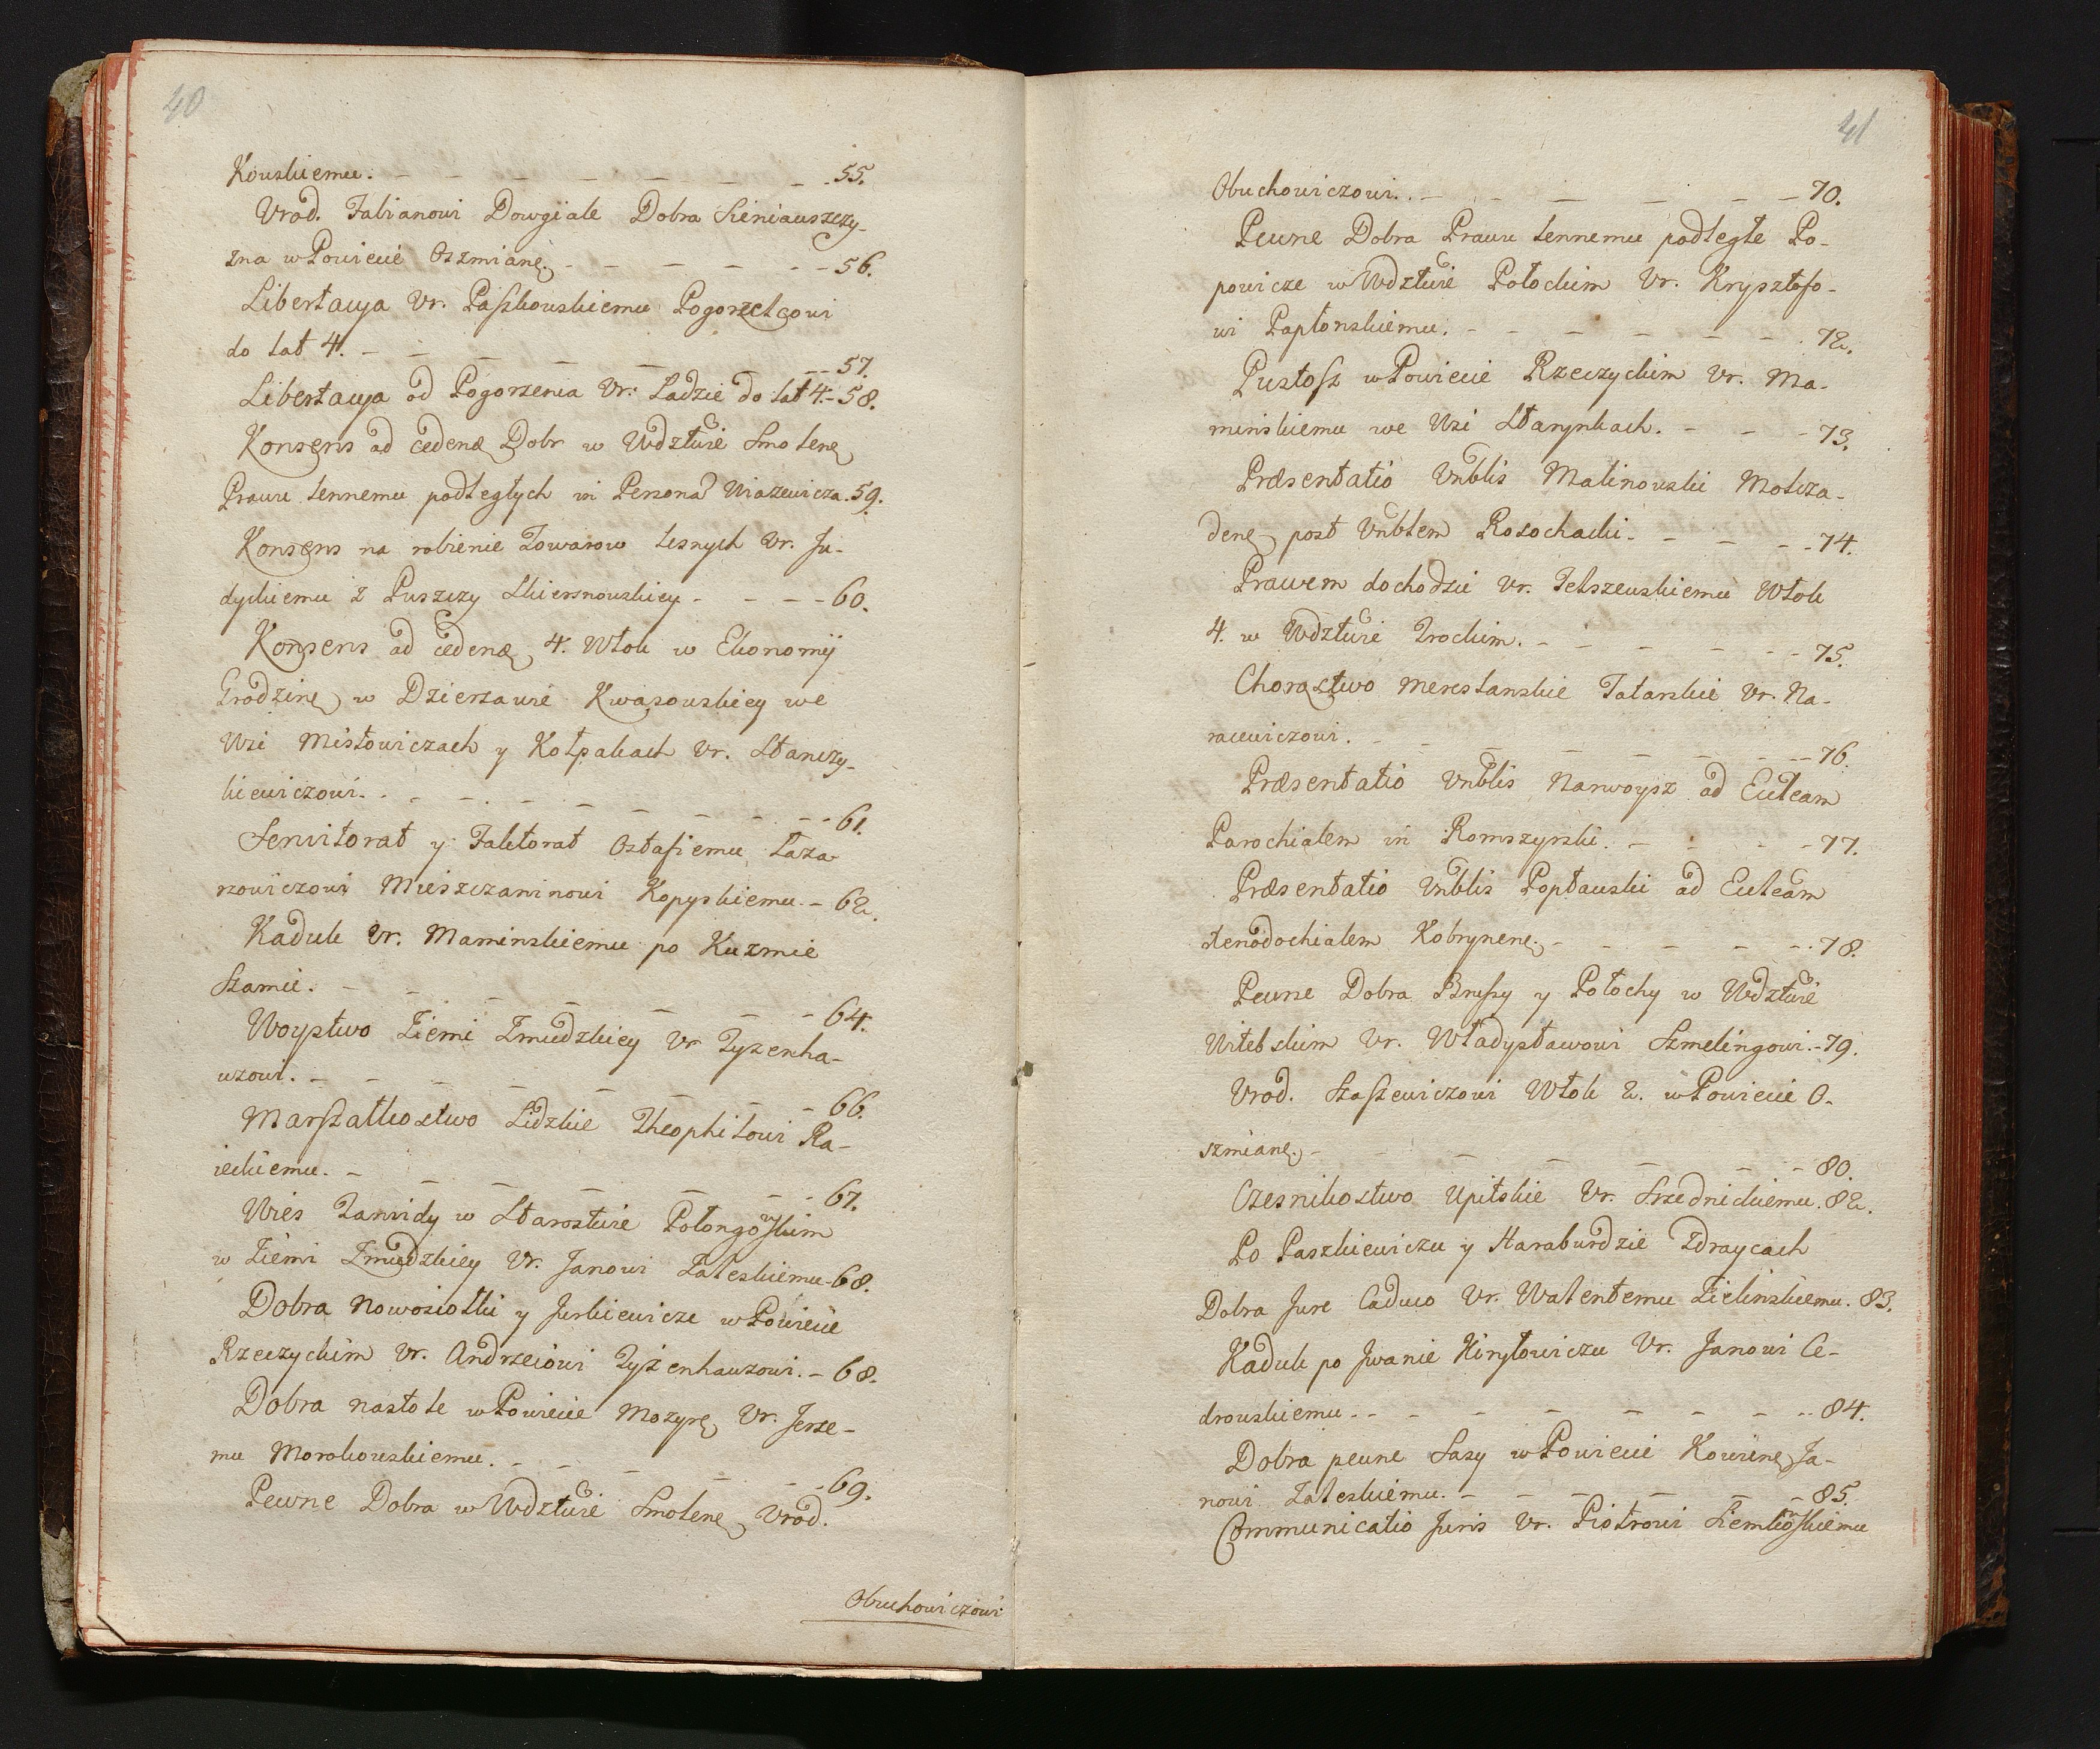 40
Kowskiemu. - - - - - - - - 55.
Urod. Fabianowi Dowgiale Dobra Sieniawszczy-
zna w Powiecie Oszmianę. - - - - - - 56.
Libertacya Ur. Paszkowskiemu Pogorzelcowi
do lat 4. - - - - - - - 57.
Libertacya od Pogorzenia Ur: Ladzie do lat 4. - 58.
Konsens ad cedenđ Dobr w Wdztwie Smolenę
Prawu lennemu podległych in Persona Wiazewicza. 59.
Konsens na robienie Towarow lesnych Ur. Ju-
dyckiemu z Puszczy Skiersnowskiey - - - - 60.
Konsens ad cedenđ 4. Włok w Ekonomij
Grodzinę w Dzierzawie Kwasowskiey we
Wsi Mistowiczach y Kołpakach Ur. Stanczy-
kiewiczowi. - - - - - - - - 61.
Servitorat y Faktorat Ostafiemu Łaza-
rzowiczowi Mieszczaninowi Kopyskiemu. - 62.
Kaduk Ur. Maminskiemu po Kuzmie
Szamie. - - - - - - - 64.
Woystwo Ziemi Zmudzkiey Ur Tyzenha-
uzowi. - - - - - - - - 66.
Marszałkostwo Lidzkie Theophilowi Ra-
ieckiemu. - - - - - - - 67.
Wies Zawidy w Starostwie Połongowskim
w Ziemi Zmudzkiey Ur. Janowi Zaleskiemu - 68.
Dobra Nowosiołki y Jurkiewicze w Powiecie
Rzeczyckim Ur. Andrzeiowi Tyzenhauzowi. - 68.
Dobra Nastole w Powiecie Mozyrę Ur. Jerze-
mu Morokowskiemu. - - - - - - 69.
Pewne Dobra w Wdztwie Smolenę Urod.
Obuchowiczowi
41
Obuchowiczowi. - - - - - - - 70.
Pewne Dobra Prawu lennemu podległe Po-
powicze w Wdztwie Połockim Ur. Krysztofo-
wi Paplonskiemu. - - - - - - 72.
Pustosz w Powiecie Rzeczyckim Ur. Ma-
minskiemu we Wsi Starynkach. - - - 73.
Præsentatio Vnblis Malinowski Molcza-
denę post Vnblem Rosochacki - - - - 74.
Prawem dochodzic Ur. Telszewskiemu Włok
4. w Wdztwie Trockim. - - - - - - 75.
Chorąstwo Mereslanskie Tatarskie Ur. Na-
racewiczowi. - - - - - - - 76.
Præsentatio Vnblis Narwoysz ad Eccleam
Parochialem in Romszyszki. - - - - 77.
Præsentatio Vnblis Popławski ad Eccleam
Xenodochialem Kobrynenę. - - - - - 78.
Pewne Dobra Brussy y Połochy w Wdztwie
Witebskim Ur. Władysławowi Szmelingowi. - 79.
Urod. Staszewiczowi Włok 2. w Powiecie O-
szmianę. - - - - - - - 80.
Czesnikostwo Upitskie Ur. Srzednickiemu. 82.
Po Paszkiewiczu y Haraburdzie Zdraycach
Dobra Jure Caduco Ur. Walentemu Zielinskiemu. 83.
Kaduk po Jwanie Kiryłowiczu Ur. Janowi Ce-
drowskiemu. - - - - - - - 84.
Dobra pewne Sasy w Powiecie Kowienę Ja-
nowi Zaleskiemu. - - - - - - 85.
Communicatio Juris Ur. Piotrowi Siemkowskiemu